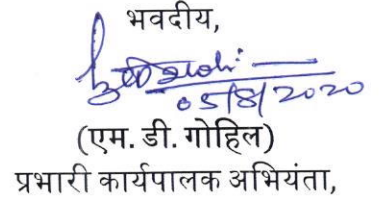 भवदीय,
05/8/2020
(एम. डी. गोहिल)
प्रभारी कार्यपालक अभियंता,